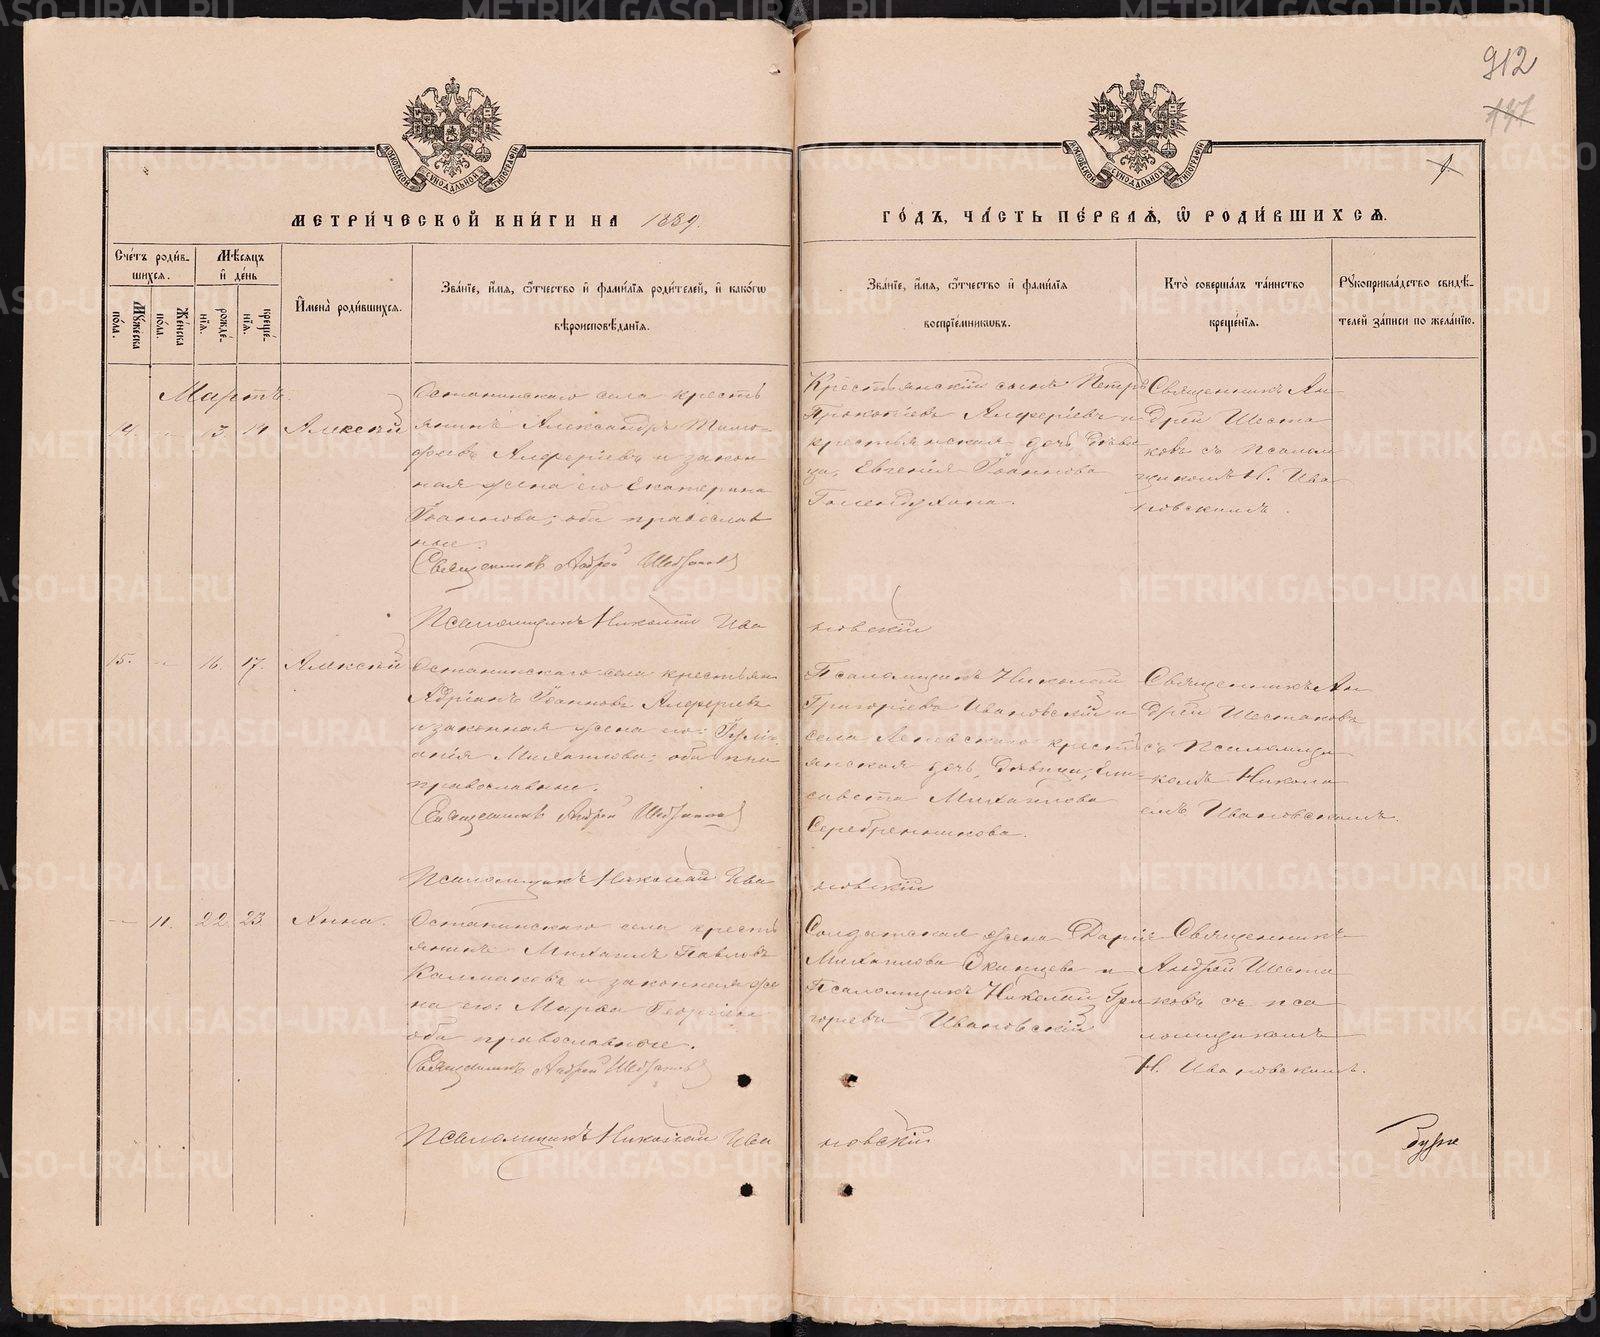 912
МОСКОВСКОЙ СѴНОДАЛЬНОЙ ТИПОГРАФІИ
МОСКОВСКОЙ СѴНОДАЛЬНОЙ ТИПОГРАФІИ
МЕТРИ́ЧЕСКОЙ КНИ́ГИ НА 1889.
ГО́ДЪ, ЧА́СТЬ ПЕ́РВАѦ, Ѡ҆ РОДИ́ВШИХСѦ.
Сче́тъ роди́в-
шихсѧ.
Мꙋ́жеска по́ла.
Же́нска по́ла.
Мѣ́сѧцъ
и҆ де́нь
рожде́нїѧ.
креще́нїѧ.
И҆мена̀ роди́вшихсѧ.
Зва́нїе, и҆́мѧ, ѻ҆́тчество и҆ фами́лїѧ роди́телей, и҆ како́гѡ
вѣроисповѣ́данїѧ.
Зва́нїе, и҆́мѧ, ѻ҆́тчество и҆ фами́лїѧ
воспрїе́мникѡвъ.
Кто̀ соверша́лъ та́инство
креще́нїѧ.
Рꙋкоприкла́дство свидѣ́-
телей за́писи по жела́нїю.
Мартъ.
14. — 13. 14 Алексѣй
Останинскаго села кресть
янинъ Александръ Тимо-
фѣевъ Алферіевъ и закон
ная жена его Екатерина
Іоаннова; оба православ
ные.
Священникъ Андрей Шестаковъ
Псаломщикъ Николай Ива
новскій
Крестьянскій сынъ Петръ
Прокопіевъ Алферіевъ и
крестьянская дочь, дѣви
ца, Евгенія Іоаннова
Голендухина.
Священникъ Ан-
дрей Шеста
ковъ съ псалом
щикомъ Н. Ива
новскимъ.
15. — 16. 17. Алексѣй
Останинскаго села крестьян.
Адріанъ Іоанновъ Алферіевъ
и законная жена его: Іулі-
анія Михаилова; оба пра
православные.
Священникъ Андрей Шестаковъ
Псаломщикъ Николай Ива
новскій
Псаломщикъ Николай
Григоріевъ Ивановскій и
села Леневскаго кресть
янская дочь, дѣвица, Ели-
савета Михаилова
Серебренникова.
Священникъ Ан
дрей Шестаковъ
съ псаломщи
комъ Никола
емъ Ивановскимъ.
— 11. 22. 23 Анна.
Останинскаго села кресть
янинъ Михаилъ Павловъ
Калмаковъ и законная же
на его: Марѳа Георгіева
оба православные.
Священникъ Андрей Шестаковъ
Псаломщикъ Николай Ива
новскій
Солдатская жена Дарія
Михаилова и
Псаломщикъ Николай Гри
горіевъ Ивановскій
Священникъ
Андрей Шеста
ковъ съ пса
ломщикомъ
Н. Ивановскимъ.
METRIKI.GASO-URAL.RU